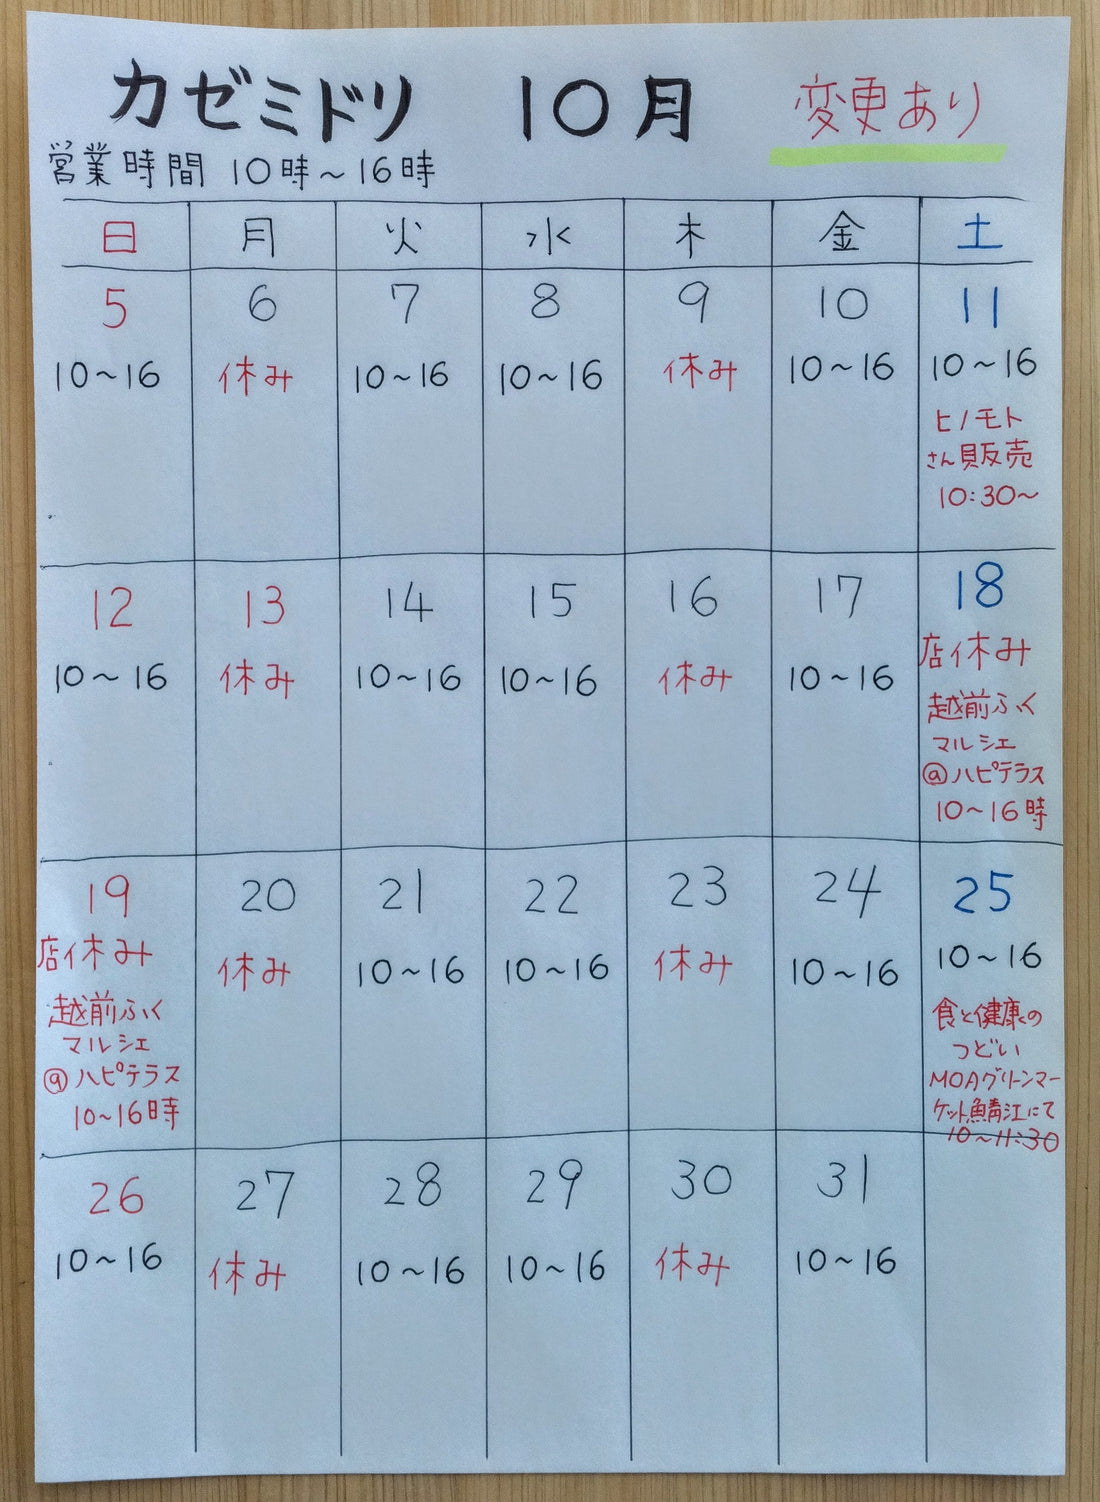 カゼミドリ 10月 変更あり
営業時間 10時～16時
日 月 火 水 木 金 土
5 6 7 8 9 10 11
10～16 休み 10～16 10～16 休み 10～16 10～16
ヒノモト
さん販売
10:30～
12 13 14 15 16 17 18
10～16 休み 10～16 10～16 休み 10～16 店休み
越前ふく
マルシェ
@ハピテラス
10～16時
19 20 21 22 23 24 25
店休み 休み 10～16 10～16 休み 10～16 10～16
越前ふく
マルシェ
@ハピテラス
10～16時
食と健康の
つどい
MOAグリーンマー
ケット鯖江にて
10～11:30
26 27 28 29 30 31
10～16 休み 10～16 10～16 休み 10～16